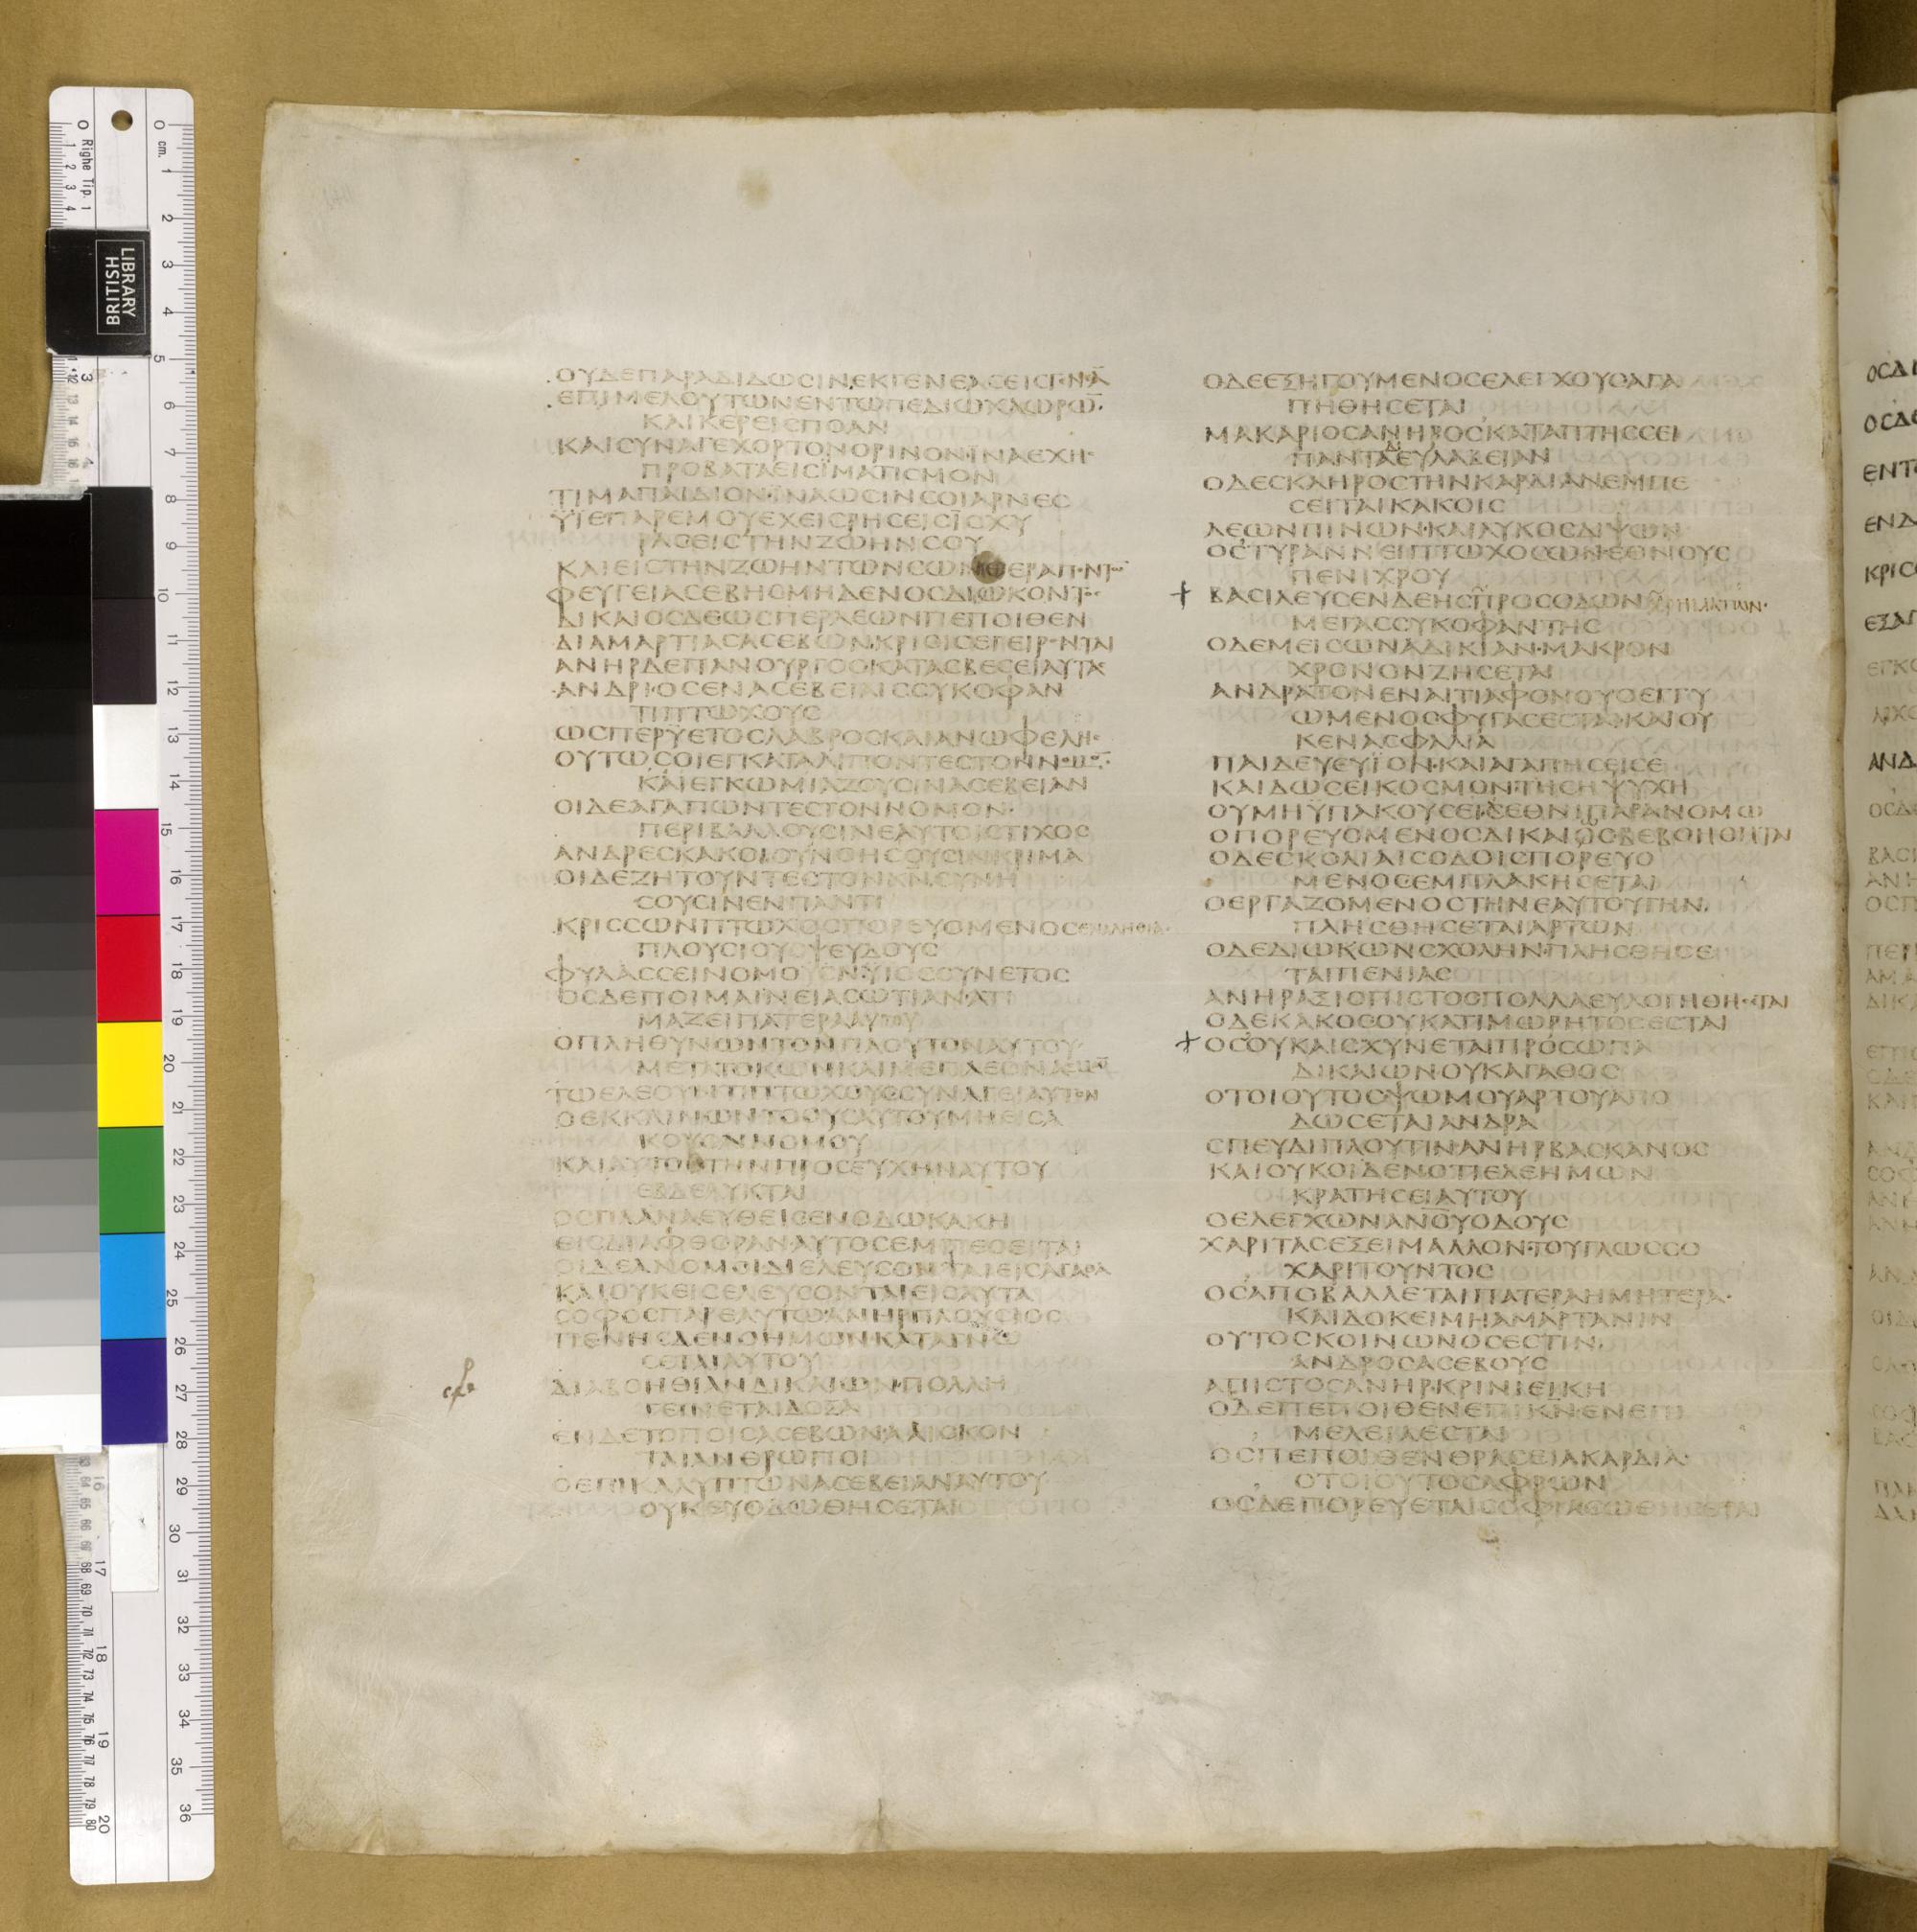 Righe Tip. 1
cm.
BRITISH
LIBRARY
ΟΥΔΕΠΑΡΑΔΙΔΩCΙΝΕΚΓΕΝΕΑCΕΙC
ΕΠΙΜΕΛΟΥΤΩΝΕΝΤΩΠΕΔΙΩΧΛΩΡΩ̅
ΚΑΙΚΕΡΕΙCΠΟΑΝ
ΚΑΙCΥΝΑΓΕΧΟΡΤΟΝΟΡΙΝΟΝΪΝΑΕΧΗC
ΠΡΟΒΑΤΑΕΙCΪΜΑΤΙCΜΟΝ
ΤΙΜΑΠΑΙΔΙΟΝΪΝΑΩCΙΝCΟΙΑΡΝΕC
ΫΪΕΠΑΡΕΜΟΥΕΧΕΙCΡΗCΕΙCΪCΧΥ
ΡΑCΕΙCΤΗΝΖΩΗΝCΟΥ
ΚΑΙΕΙCΤΗΝΖΩΗΝΤΩΝCΩΝ
ΦΕΥΓΕΙΑCΕΒΗCΜΗΔΕΝΟCΔΙΩΚΟΝΤΟC
ΔΙΚΑΙΟCΔΕΩCΠΕΡΛΕΩΝΠΕΠΟΙΘΕΝ
ΔΙΑΜΑΡΤΙΑCΑCΕΒΩΝΚΡΙCΙC
ΑΝΗΡΔΕΠΑΝΟΥΡΓΟCΚΑΤΑCΒΕCΕΙΑΥΤΑC
ΑΝΔΡΙΟCΕΝΑCΕΒΕΙΑΙCCΥΚΟΦΑΝ
ΤΙΠΤΩΧΟΥC
ΩCΠΕΡΫΕΤΟCΛΑΒΡΟCΚΑΙΑΝΩΦΕΛΗC
ΟΥΤΩCΟΙΕΓΚΑΤΑΛΙΠΟΝΤΕCΤΟΝΝΟΜΟ̅
ΚΑΙΕΓΚΩΜΙΑΖΟΥCΙΝΑCΕΒΕΙΑΝ
ΟΙΔΕΑΓΑΠΩΝΤΕCΤΟΝΝΟΜΟΝ
ΠΕΡΙΒΑΛΛΟΥCΙΝΕΑΥΤΟΙCΤΙΧΟC
ΑΝΔΡΕCΚΑΚΟΙΟΥΝΟΗCΟΥCΙΝΚΡΙΜΑ
ΟΙΔΕΖΗΤΟΥΝΤΕCΤΟΝΚΝCΥΝΗ
CΟΥCΙΝΕΝΠΑΝΤΙ
ΚΡΙCCΩΝΠΤΩΧΟCΠΟΡΕΥΟΜΕΝΟCΕΝΑΛΗΘΙΑ
ΠΛΟΥCΙΟΥΨΕΥΔΟΥC
ΦΥΛΑCCΕΙΝΟΜΟΝΫΙΟCCΥΝΕΤΟC
ΟCΔΕΠΟΙΜΑΙΝΕΙΑCΩΤΙΑΝΑΤΙ
ΜΑΖΕΙΠΑΤΕΡΑΑΥΤΟΥ
ΟΠΛΗΘΥΝΩΝΤΟΝΠΛΟΥΤΟΝΑΥΤΟΥ
ΜΕΤΑΤΟΚΩΝΚΑΙΜΕΤΑΠΛΕΟΝΑCΜΩ̅
ΤΩΕΛΕΟΥΝΤΙΠΤΩΧΟΥCCΥΝΑΓΕΙΑΥΤΟΝ
ΟΕΚΚΛΙΝΩΝΤΟΟΥCΑΥΤΟΥΜΗΕΙCΑ
ΚΟΥCΑΙΝΟΜΟΥ
ΚΑΙΑΥΤΟCΤΗΝΠΡΟCΕΥΧΗΝΑΥΤΟΥ
ΕΒΔΕΛΥΚΤΑΙ
ΟCΠΛΑΝΑΕΥΘΕΙCΕΝΟΔΩΚΑΚΗ
ΕΙCΔΙΑΦΘΟΡΑΝΑΥΤΟCΕΜΠΕCΕΙΤΑΙ
ΟΙΔΕΑΝΟΜΟΙΔΙΕΛΕΥCΟΝΤΑΙΕΙCΑΓΑΘΑ
ΚΑΙΟΥΚΕΙCΕΛΕΥCΟΝΤΑΙΕΙCΑΥΤΑ
CΟΦΟCΠΑΡΕΑΥΤΩΑΝΗΡΠΛΟΥCΙΟC
ΠΕΝΗCΔΕΝΟΗΜΩΝΚΑΤΑΓΝΩ
CΕΤΑΙΑΥΤΟΥ
ΔΙΑΒΟΗΘΙΑΝΔΙΚΑΙΩΝΠΟΛΛΗ
ΓΕΙΝΕΤΑΙΔΟΞΑ
ΕΝΔΕΤΟΠΟΙCΑCΕΒΩΝΑΛΙCΚΟΝ
ΤΑΙΑΝΘΡΩΠΟΙ
ΟΕΠΙΚΑΛΥΠΤΩΝΑCΕΒΕΙΑΝΑΥΤΟΥ
ΟΥΚΕΥΟΔΩΘΗCΕΤΑΙ
ΟΔΕΕΞΗΓΟΥΜΕΝΟCΕΛΕΓΧΟΥCΑΓΑ
ΠΗΘΗCΕΤΑΙ
ΜΑΚΑΡΙΟCΑΝΗΡΟCΚΑΤΑΠΤΗCCΕΙ
ΠΑΝΤΑΔΙΕΥΛΑΒΕΙΑΝ
ΟΔΕCΚΛΗΡΟCΤΗΝΚΑΡΔΙΑΝΕΜΠΕ
CΕΙΤΑΙΚΑΚΟΙC
ΛΕΩΝΠΙΝΩΝΚΑΙΛΥΚΟCΔΙΨΩΝ
ΟCΤΥΡΑΝΝΕΙΠΤΩΧΟCΩΝΕΘΝΟΥC
ΠΕΝΙΧΡΟΥ
ΒΑCΙΛΕΥCΕΝΔΕΗCΠΡΟCΟΔΩΝ
ΜΕΓΑCCΥΚΟΦΑΝΤΗC
ΟΔΕΜΕΙCΩΝΑΔΙΚΙΑΝΜΑΚΡΟΝ
ΧΡΟΝΟΝΖΗCΕΤΑΙ
ΑΝΔΡΑΤΟΝΕΝΑΙΤΙΑΦΟΝΟΥΟΕΓΓΥ
ΩΜΕΝΟCΦΥΓΑCΕCΤΑΙΚΑΙΟΥ
ΚΕΝΑCΦΑΛΙΑ
ΠΑΙΔΕΥΕΥΪΟΝΚΑΙΑΓΑΠΗCΕΙCΕ
ΚΑΙΔΩCΕΙΚΟCΜΟΝΤΗCΗΨΥΧΗ
ΟΥΜΗΫΠΑΚΟΥCΕΙCΕΘΝΙΠΑΡΑΝΟΜΩ
ΟΠΟΡΕΥΟΜΕΝΟCΔΙΚΑΙΩCΒΕΒΟΗΘΗΤΑΙ
ΟΔΕCΚΟΛΙΑΙCΟΔΟΙCΠΟΡΕΥΟ
ΜΕΝΟCΕΜΠΛΑΚΗCΕΤΑΙ
ΟΕΡΓΑΖΟΜΕΝΟCΤΗΝΕΑΥΤΟΥΓΗΝ
ΠΛΗCΘΗCΕΤΑΙΑΡΤΩΝ
ΟΔΕΔΙΩΚΩΝCΧΟΛΗΝΠΛΗCΘΗCΕ
ΤΑΙΠΕΝΙΑC
ΑΝΗΡΑΞΙΟΠΙCΤΟCΠΟΛΛΑΕΥΛΟΓΗΘΗCΕΤΑΙ
ΟΔΕΚΑΚΟCΟΥΚΑΤΙΜΩΡΗΤΟCΕCΤΑΙ
ΟCΟΥΚΑΙCΧΥΝΕΤΑΙΠΡΟCΩΠΑ
ΔΙΚΑΙΩΝΟΥΚΑΓΑΘΟC
ΟΤΟΙΟΥΤΟCΨΩΜΟΥΑΡΤΟΥΑΠΟ
ΔΩCΕΤΑΙΑΝΔΡΑ
CΠΕΥΔΙΠΛΟΥΤΙΝΑΝΗΡΒΑCΚΑΝΟC
ΚΑΙΟΥΚΟΙΔΕΝΟΤΙΕΛΕΗΜΩΝ
ΚΡΑΤΗCΕΙΑΥΤΟΥ
ΟΕΛΕΓΧΩΝΑΝΟ̅Υ̅ΟΔΟΥC
ΧΑΡΙΤΑCΕΞΕΙΜΑΛΛΟΝΤΟΥΓΛΩCCΟ
ΧΑΡΙΤΟΥΝΤΟC
ΟCΑΠΟΒΑΛΛΕΤΑΙΠΑΤΕΡΑΗΜΗΤΕΡΑ
ΚΑΙΔΟΚΕΙΜΗΑΜΑΡΤΑΝΙΝ
ΟΥΤΟCΚΟΙΝΩΝΟCΕCΤΙΝ
ΑΝΔΡΟCΑCΕΒΟΥC
ΑΠΙCΤΟCΑΝΗΡΚΡΙΝΙΕΙΚΗ
ΟΔΕΠΕΠΟΙΘΕΝΕΠΙΚΝΕΝΕΠΙ
ΜΕΛΕΙΑΕCΤΑΙ
ΟCΠΕΠΟΙΘΕΝΘΡΑCΕΙΑΚΑΡΔΙΑ
ΟΤΟΙΟΥΤΟCΑΦΡΩΝ
ΟCΔΕΠΟΡΕΥΕΤΑΙCΟΦΙΑCΩΘΗCΕΤΑΙ